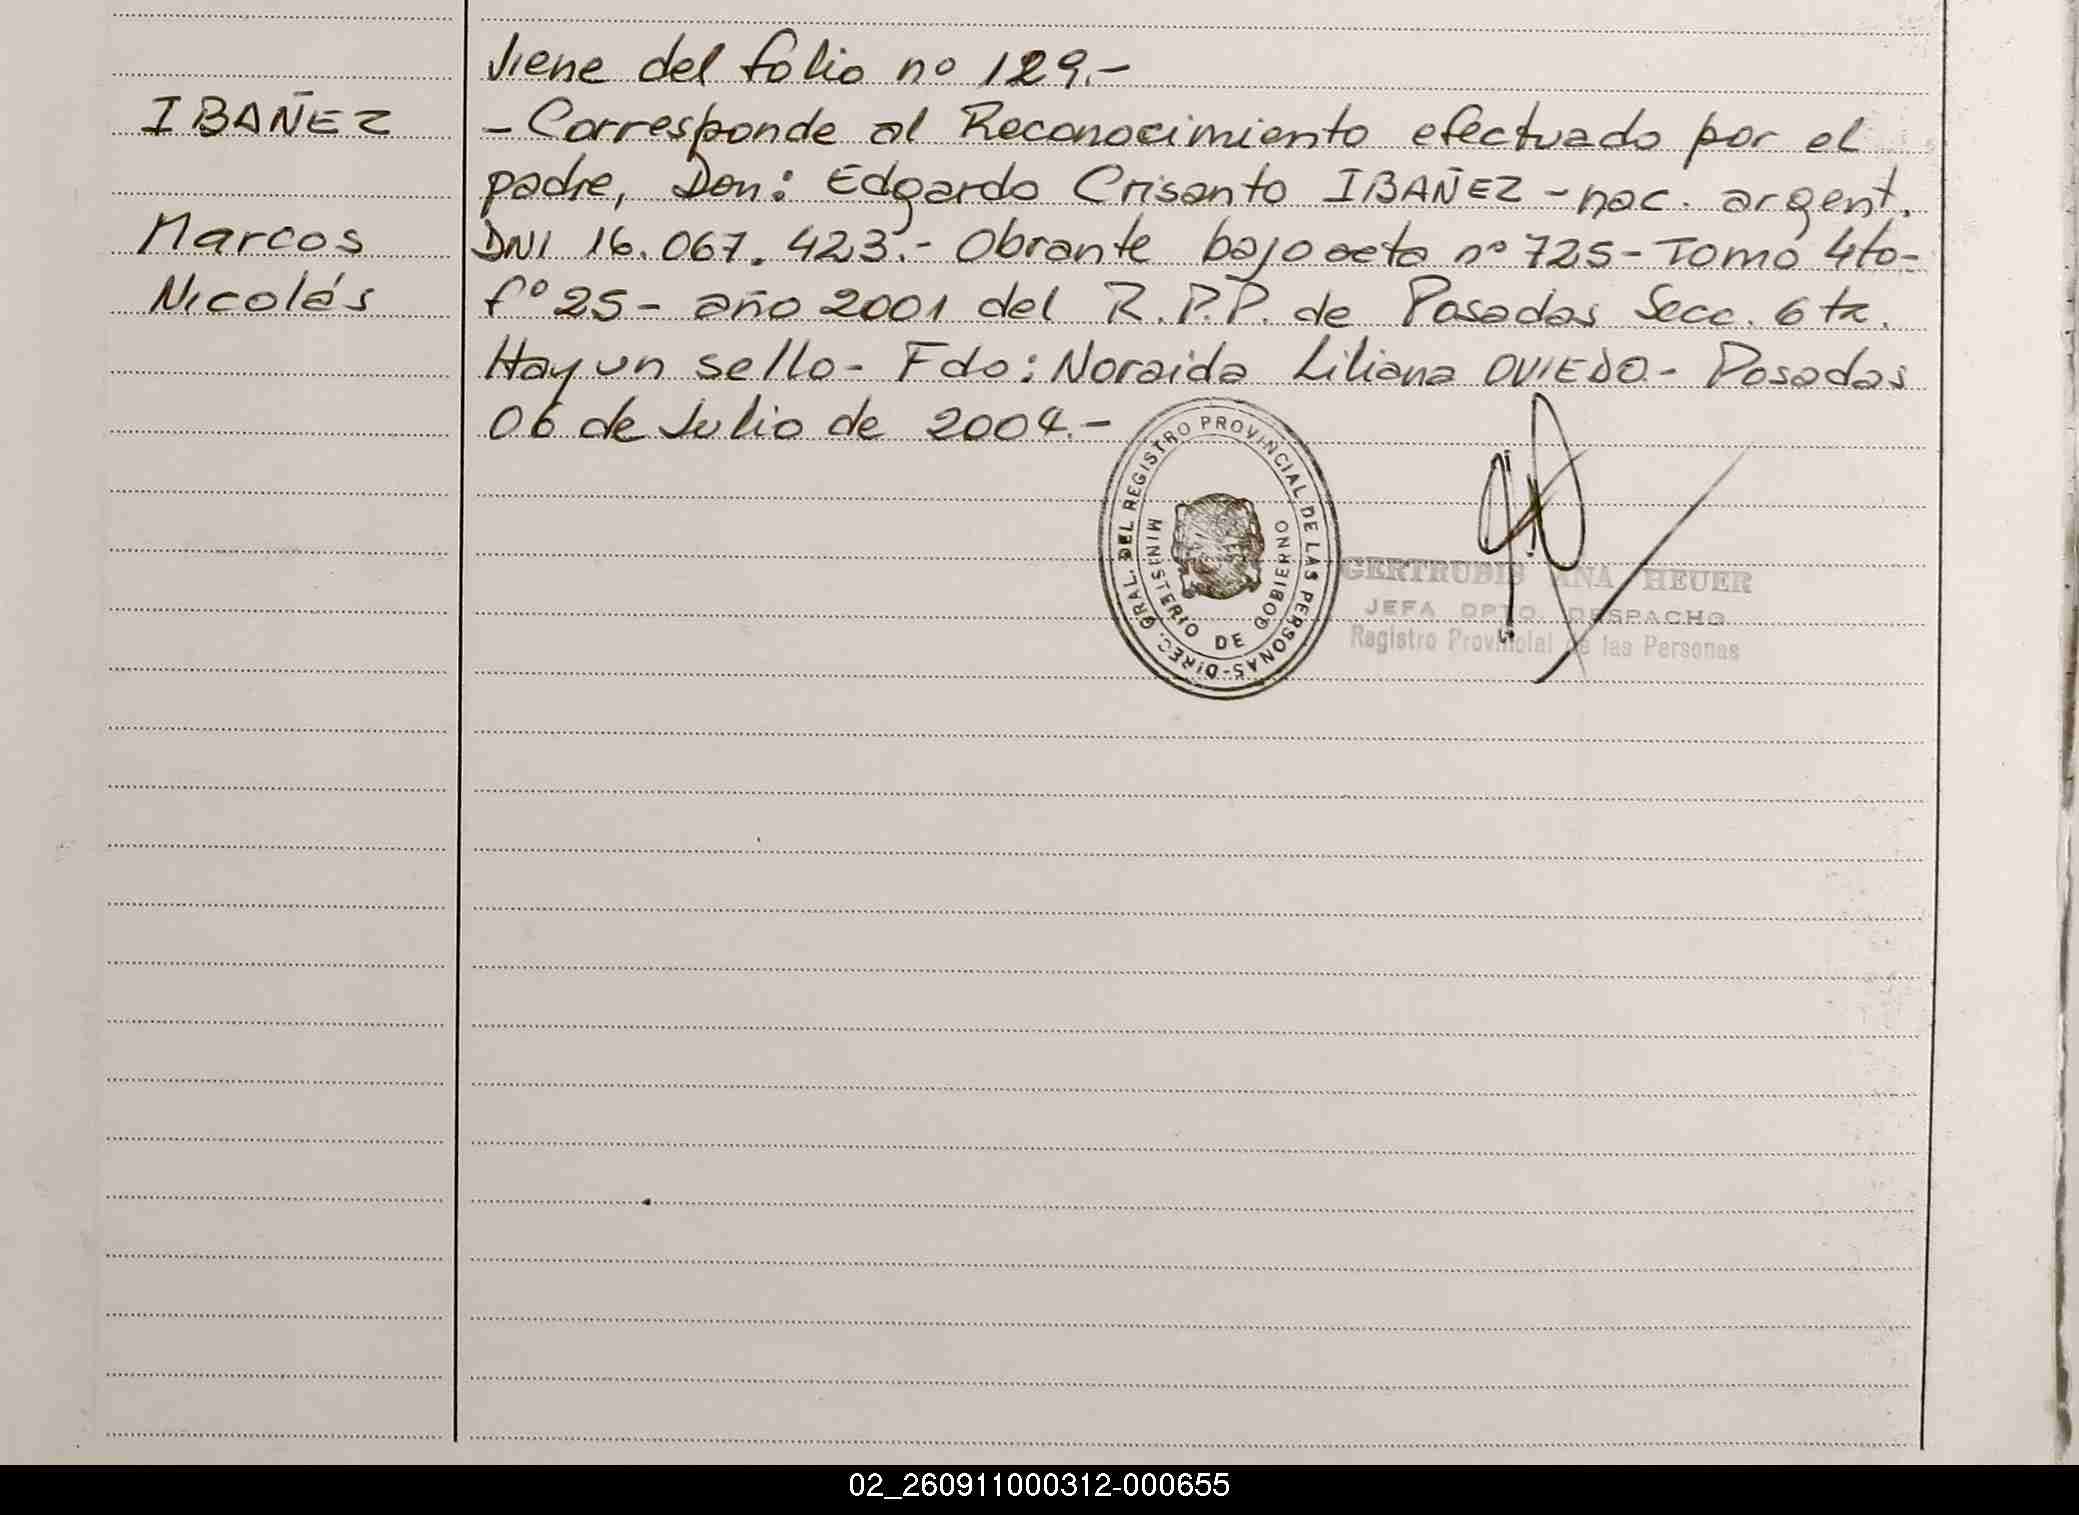 Viene del folio nº 129.-
IBAÑEZ
- Corresponde al Reconocimiento efectuado por el
padre, Don: Edgardo Crisanto IBAÑEZ - nac. argent.
Marcos
DNI 16.067.423.- Obrante bajo acta nº 725 - Tomo 4to-
Nicolás
fº 25 - año 2001 del R.P.P. de Posadas Secc. 6ta.
Hay un sello - Fdo: Noraida Liliana OVIEDO.- Posadas
06 de Julio de 2004.-
DIREC. GRAL. DEL REGISTRO PROVINCIAL DE LAS PERSONAS-
MINISTERIO DE GOBIERNO
GERTRUDIS ANA HEUER
JEFA DPTO. DESPACHO
Registro Provincial de las Personas
02_260911000312-000655